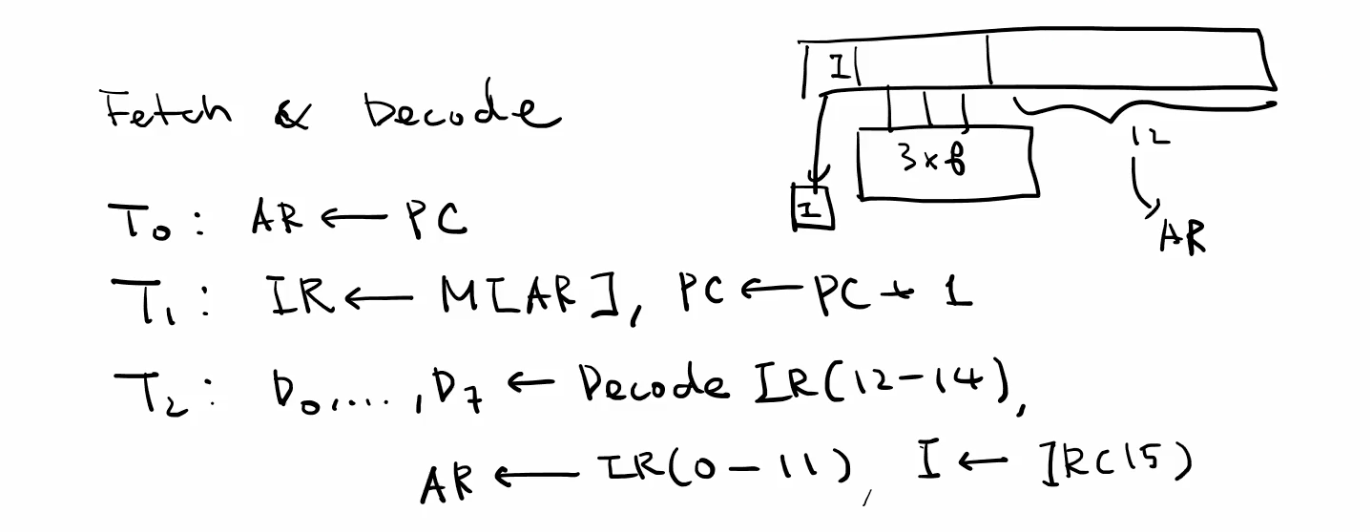 I
Fetch & Decode
3 x 8
12
I
AR
T₀ : AR ← PC
T₁ : IR ← M[AR], PC ← PC + 1
T₂ : D₀, ..., D₇ ← Decode IR(12-14),
AR ← IR(0-11), I ← IR(15)